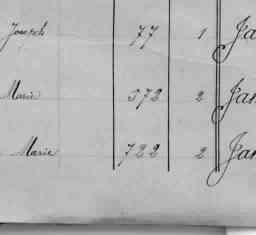 Joseph 77 1 Ja
Marie 372 2 Jan
Marie 722 2 Jan